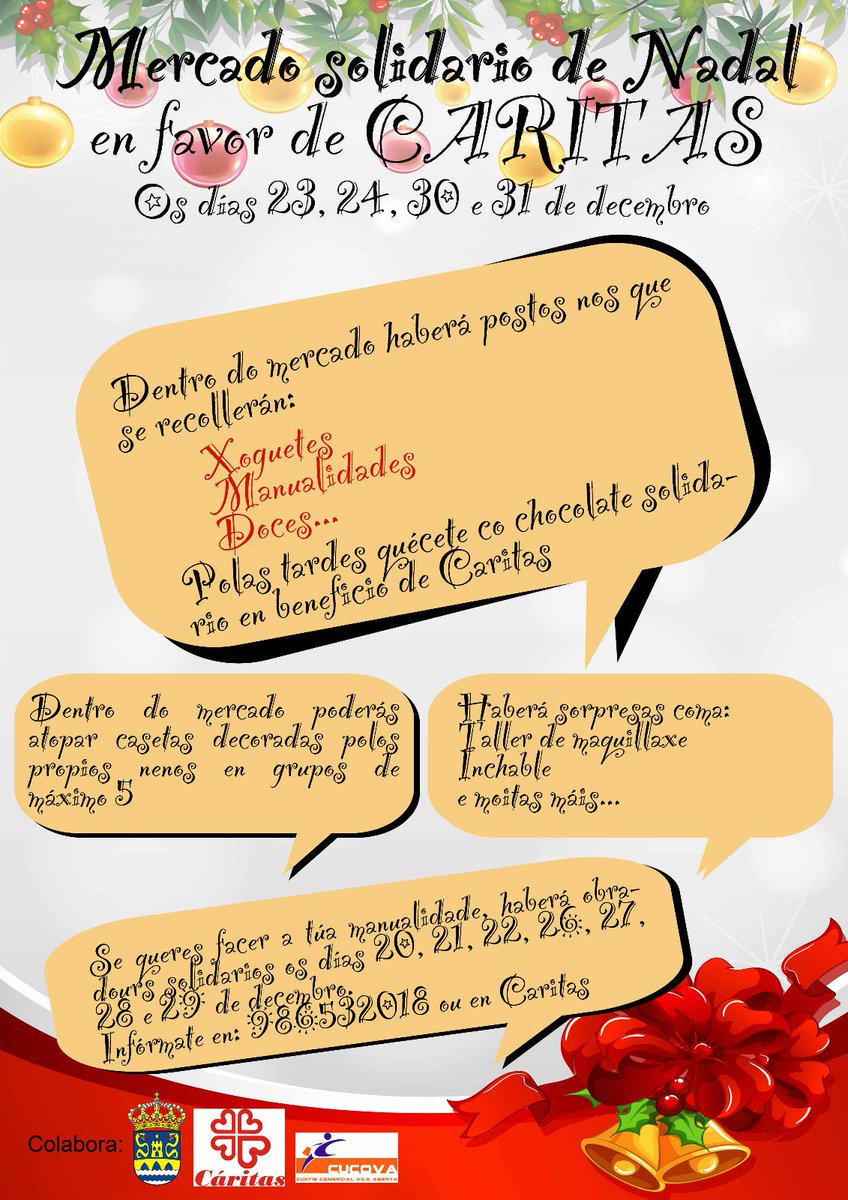 Mercado solidario de Nadal
en favor de CARITAS
Os días 23, 24, 30 e 31 de decembro
Dentro do mercado haberá postos nos que
se recollerán:
Xoguetes
Manualidades
Doces...
Polas tardes quécete co chocolate solida-
rio en beneficio de Caritas
Dentro do mercado poderás
atopar casetas decoradas polos
propios nenos en grupos de
máximo 5
Haberá sorpresas coma:
Taller de maquillaxe
Inchable
e moitas máis...
Se queres facer a túa manualidade, haberá obra-
dours solidarios os días 20, 21, 22, 26, 27,
28 e 29 de decembro.
Infórmate en: 986532018 ou en Caritas
Colabora:
Cáritas
CUCOVA
CUNTIS COMERCIAL VILA ABERTA